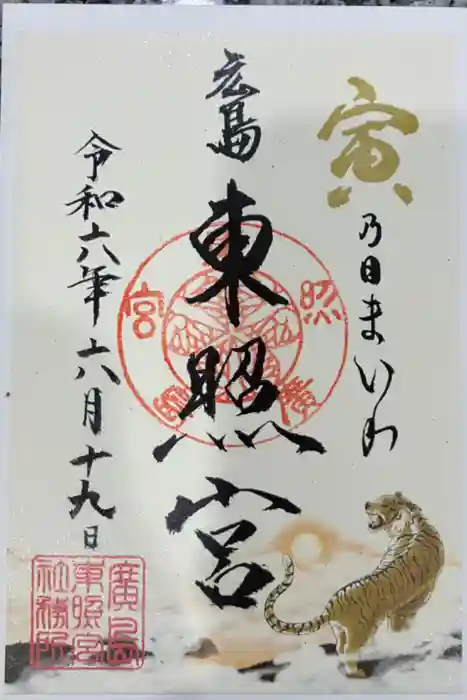 寅
乃日まいり
広島
東照宮
令和六年六月十九日
廣島
東照宮
社務所